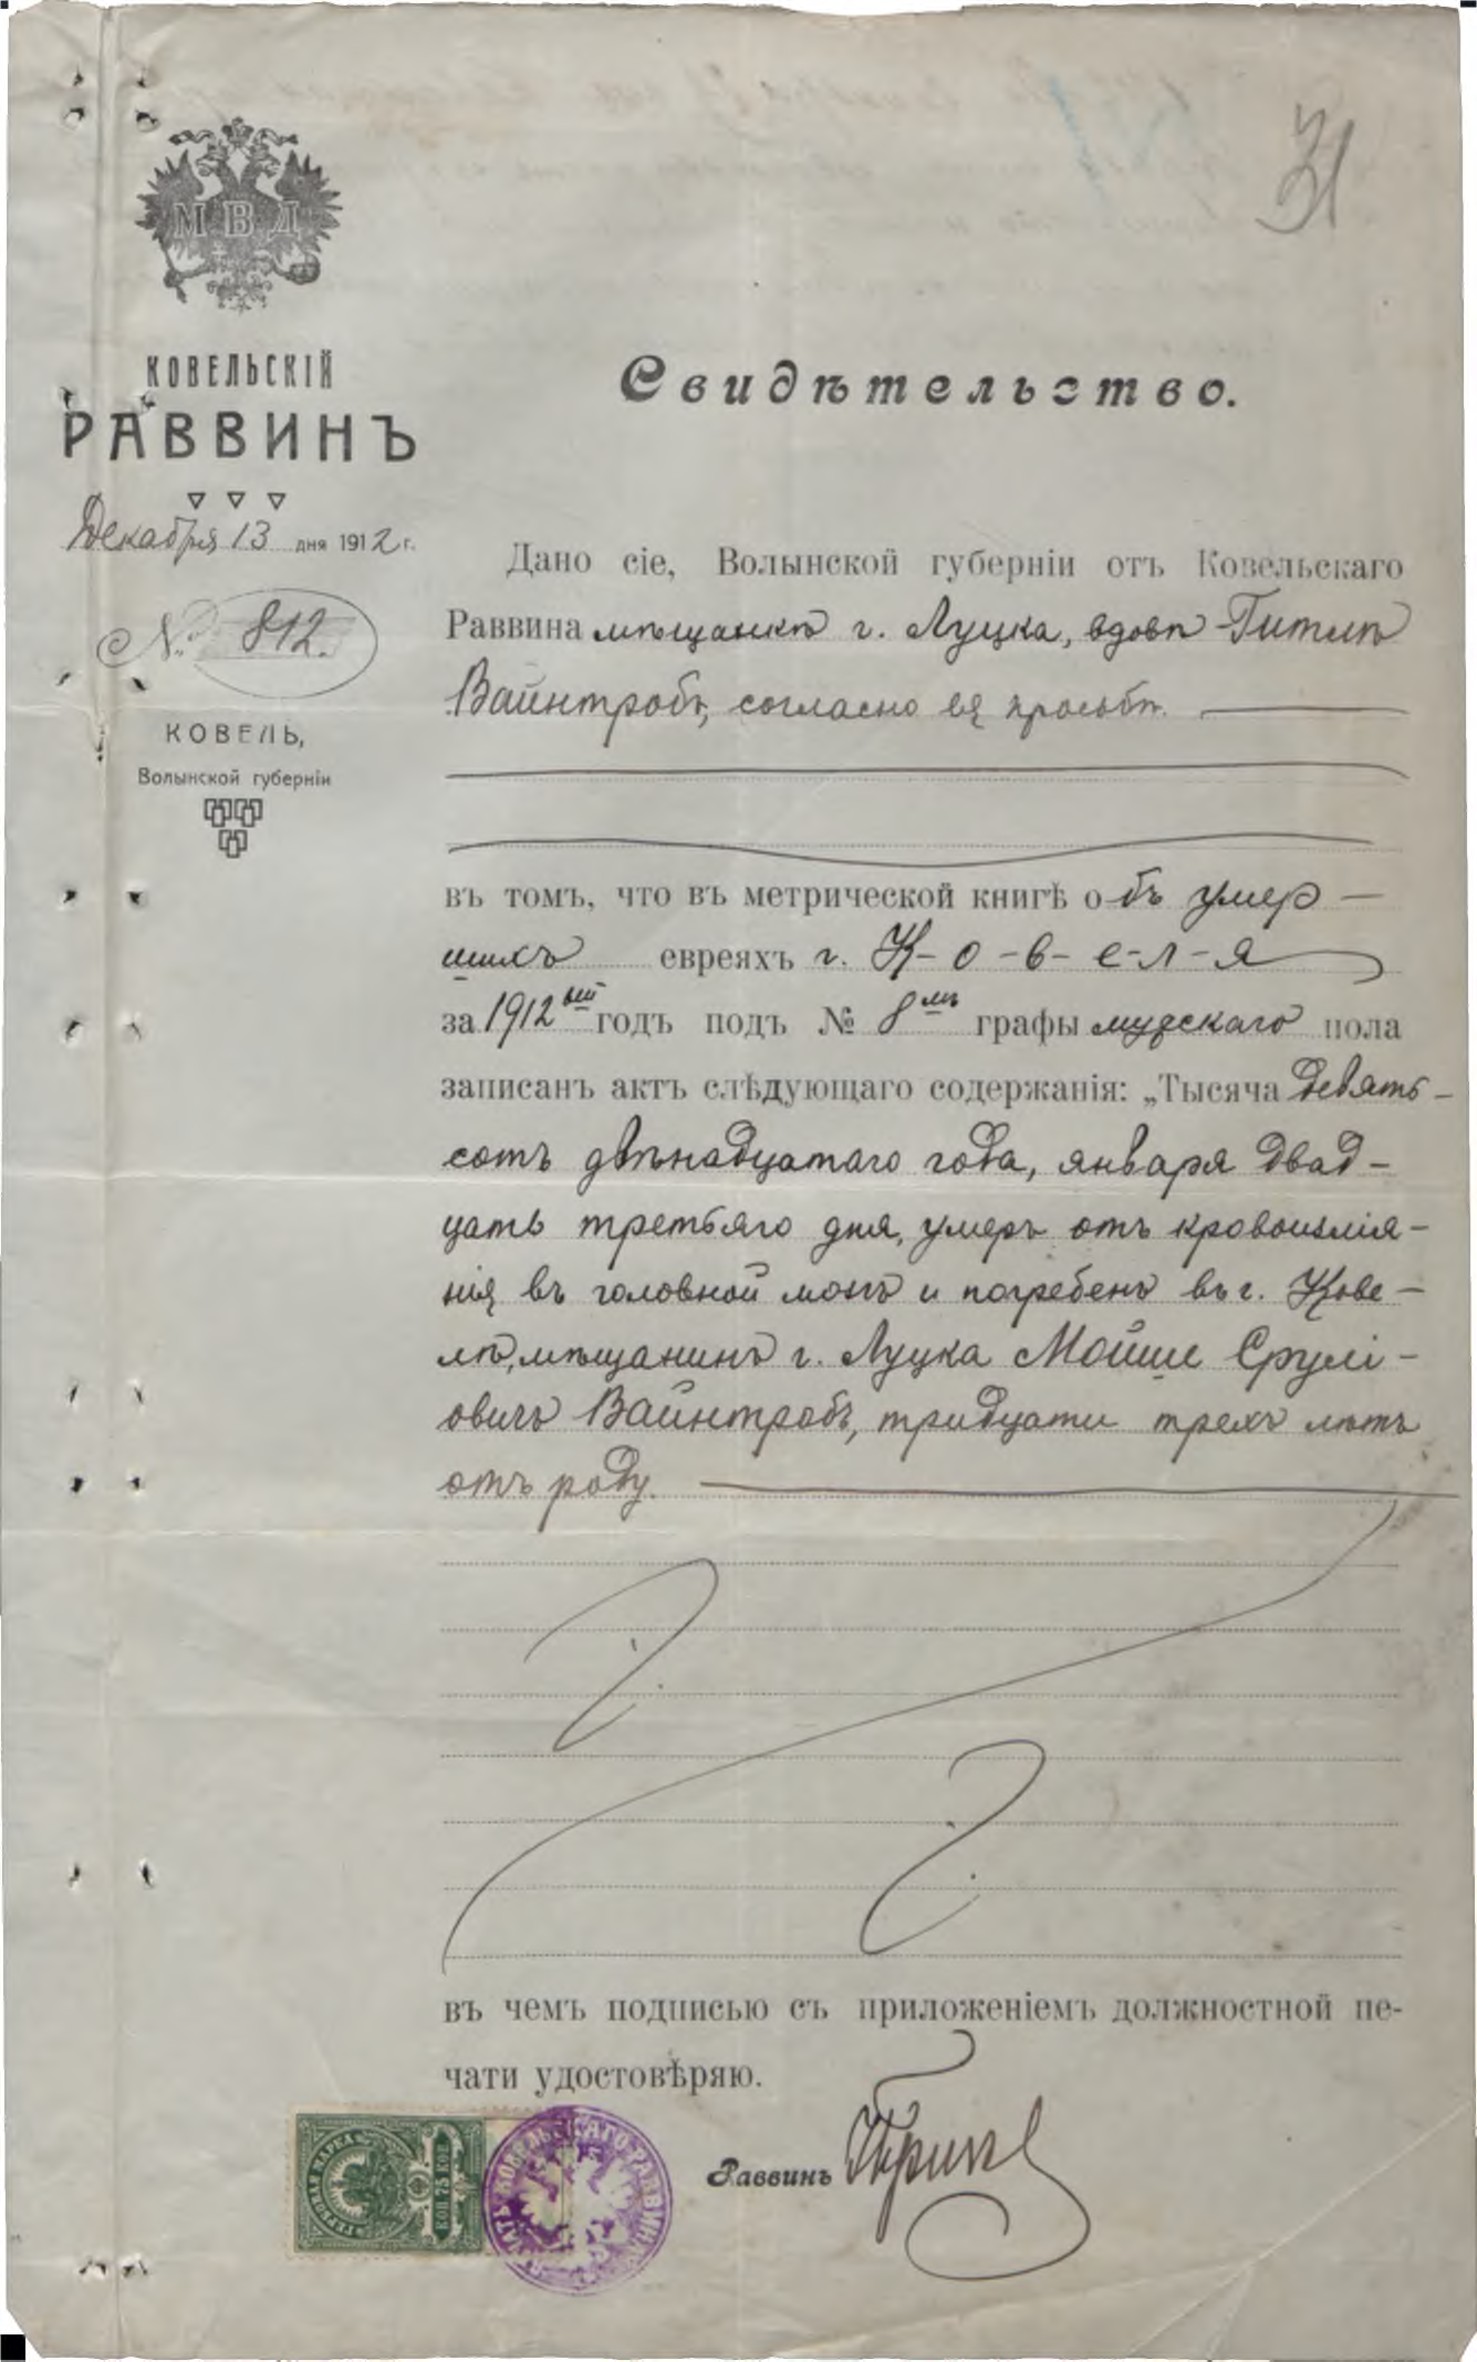 31
М В Д
КОВЕЛЬСКІЙ
РАВВИНЪ
Декабря 13 дня 1912 г.
№ 812.
КОВЕЛЬ,
Волынской губерніи
Свидѣтельство.
Дано сіе, Волынской губерніи отъ Ковельскаго
Раввина мѣщанкѣ г. Луцка, вдовѣ Гитлѣ
Вайнтробъ, согласно ея просьбѣ.
въ томъ, что въ метрической книгѣ объ умер-
шихъ евреяхъ г. К-о-в-е-л-я
за 1912ый годъ подъ № 8мъ графы мужскаго пола
записанъ актъ слѣдующаго содержанія: „Тысяча девять-
сотъ двѣнадцатаго года, января двад-
цать третьяго дня, умеръ отъ кровоизлія-
нія въ головной мозгъ и погребенъ въ г. Кове-
лѣ, мѣщанинъ г. Луцка Мойше Срулі-
овичъ Вайнтробъ, тридцати трехъ лѣтъ
отъ роду.
въ чемъ подписью съ приложеніемъ должностной пе-
чати удостовѣряю.
Раввинъ
ГЕРБОВАЯ МАРКА
КОП 75 КОП
КОВЕЛЬСКАГО РАВВИНА